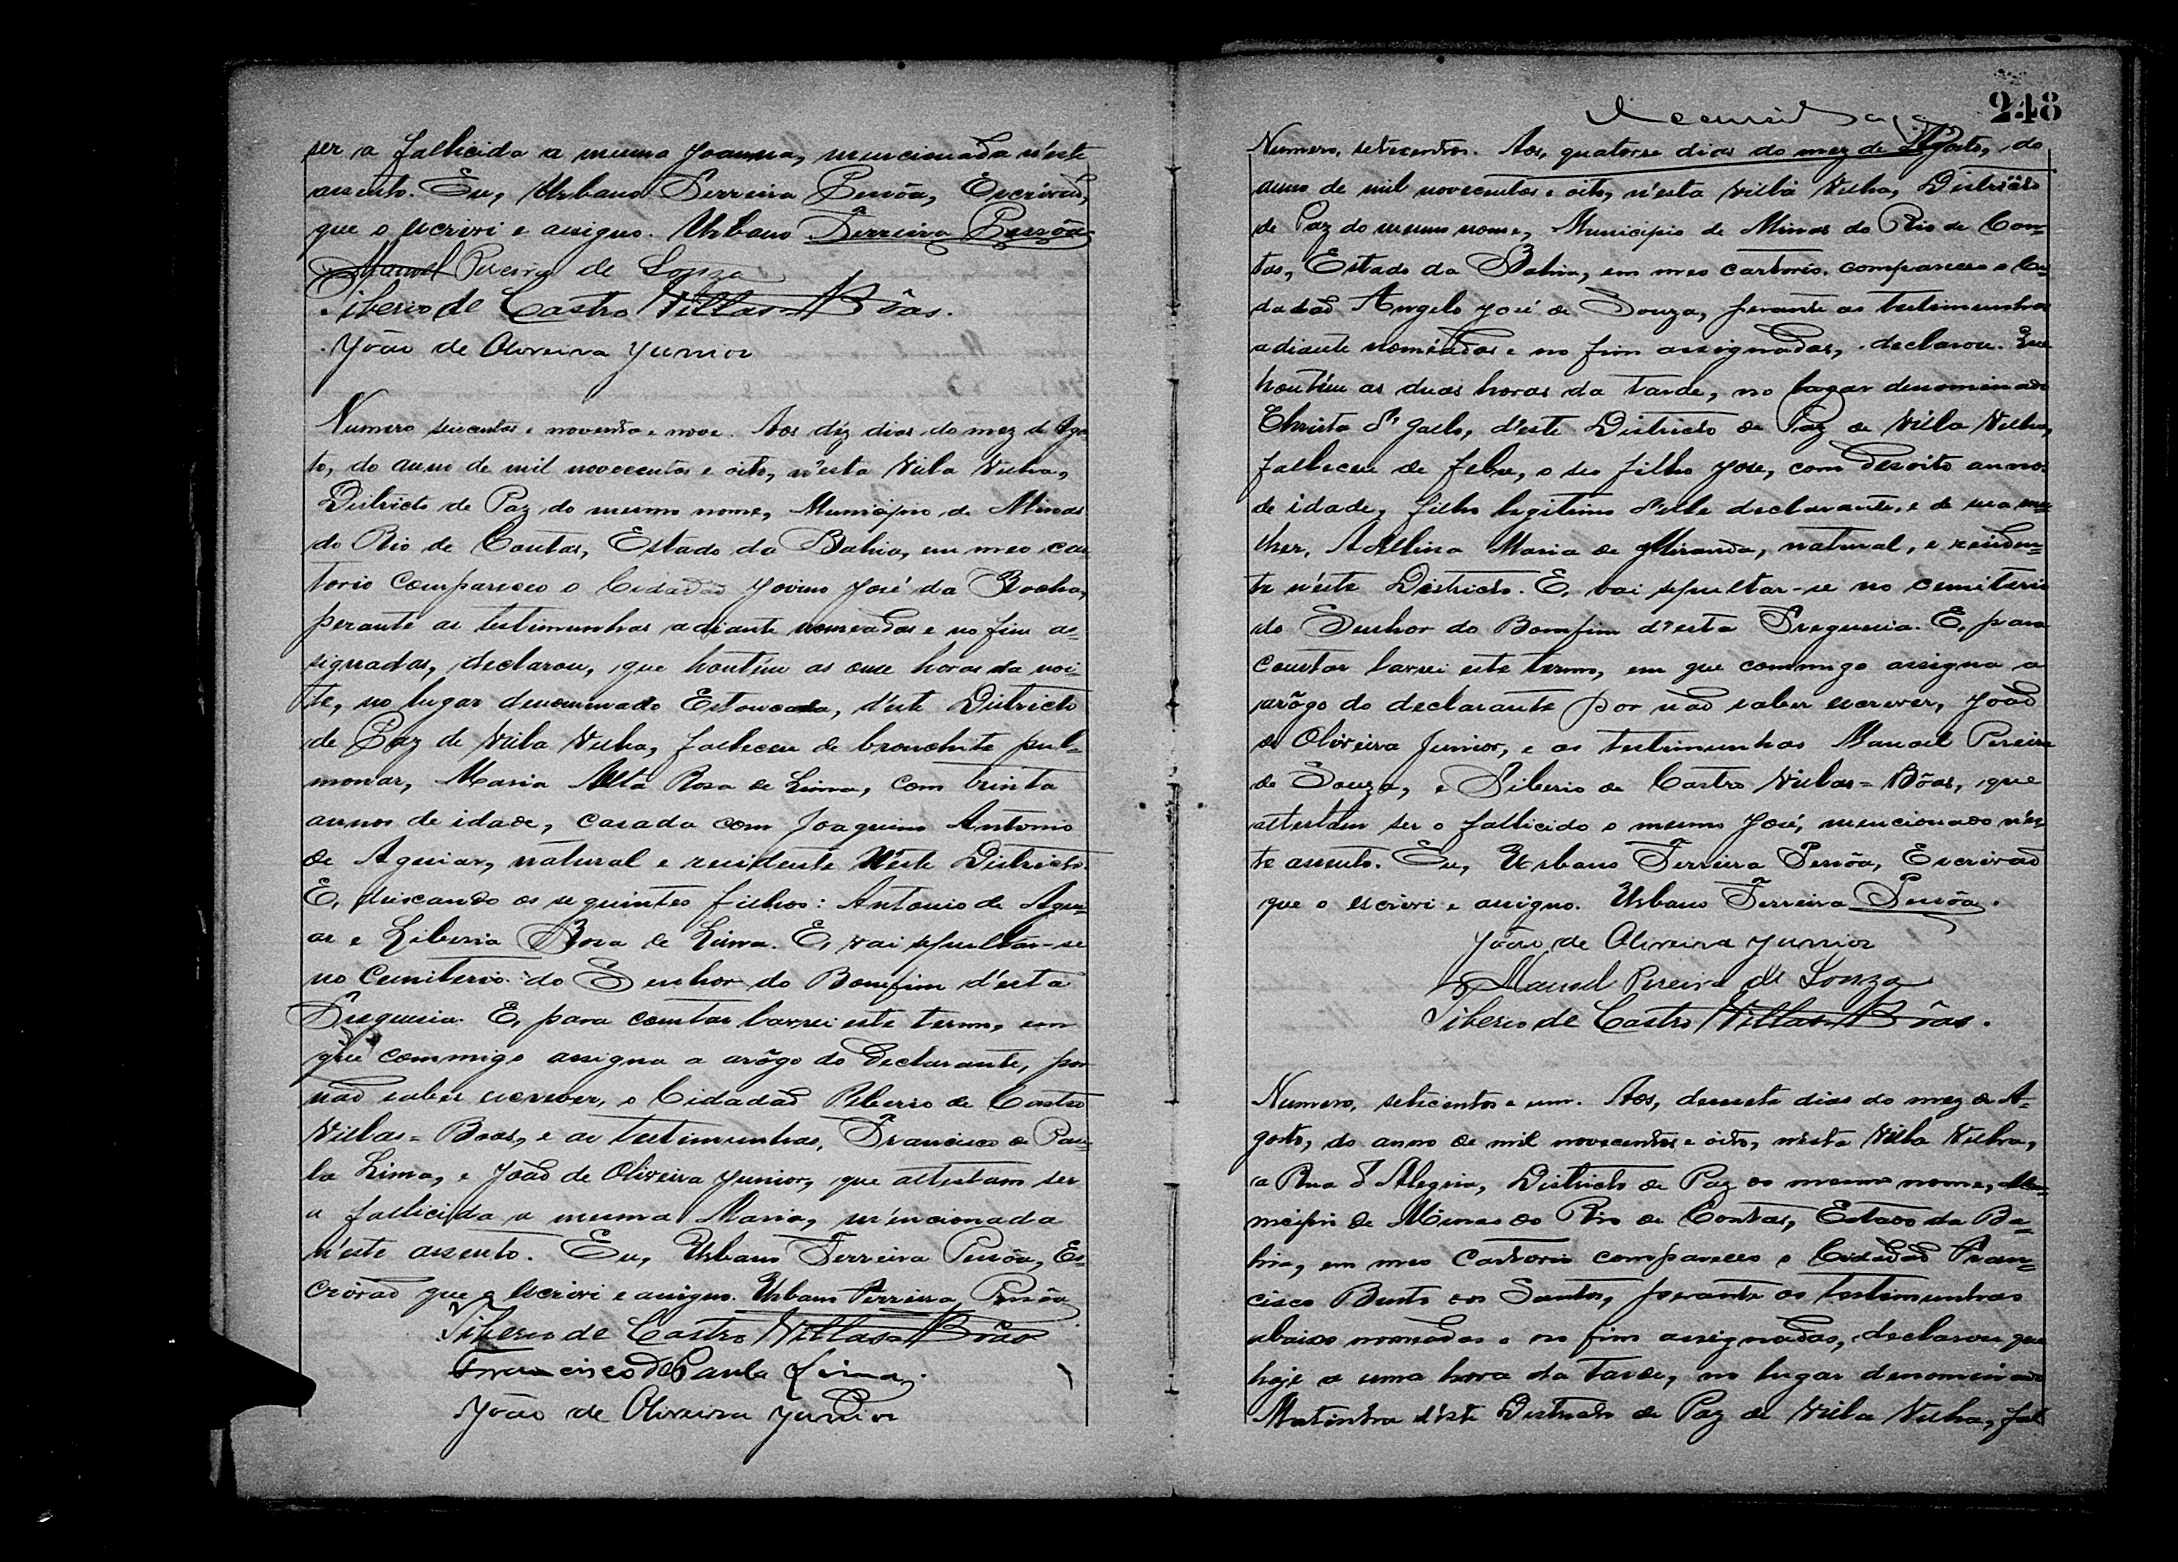 ser a fallicida a mesma Joanna, mencionada n'este
assento. Eu, Urbano Ferreira Pessôa, Escrivão,
que o escrivi e assigno. Urbano Ferreira Pessôa
Manoel Pereira de Souza
Tiberio de Castro Villas Bôas.
João de Oliveira Junior
Numero seiscentos e noventa e nove. Aos déz dias do mez de Agos
to, do anno de mil novecentos e oito, n'esta Villa Velha,
Districto de Paz do mesmo nome, Municipio de Minas
do Rio de Contas, Estado da Bahia, em meo car
torio compareceo o Cidadão Jovino José da Rocha,
perante as testimunhas adiante nomeadas e no fim as=
signadas, declarou, que hontém as onse horas da noi=
te, no lugar denominado d'este Districto
de Paz de Villa Velha, falleceu de bronchite pul=
monar, Maria Alta Rosa de Lima, com trinta
annos de idade, casada com Joaquim Antonio
de Aguiar, natural e residente n'este Districto.
E, deixando os seguintes filhos: Antonio de Agui=
ar e Liberia Rosa de Lima. E, vai sepultar-se
no Cemiterio do Senhor do Bomfim d'esta
Freguesia. E, para constar lavrei este termo, em
que commigo assigna a arôgo do Declarante, por
não saber escrever, o Cidadão Tiberio de Castro
Villas=Boas, e as testimunhas, Francisco de Pau=
la Lima, e João de Oliveira Junior, que attestam ser
a fallicida a mesma Maria, mencionada
n'este assento. Eu, Urbano Ferreira Pessôa, Es=
crivão que o escrivi e assigno. Urbano Ferreira Pessôa
Tiberio de Castro Villas Bôas
Francisco de Paula Lima.
João de Oliveira Junior
248
Numero, setecentos. Aos, quatorse dias do mez de Agosto, do
anno de mil novecentos e oito, n'esta Villa Velha, Districto
de Paz do mesmo nome, Municipio de Minas do Rio de Con=
tas, Estado da Bahia, em meo cartorio. compareceo o Ci=
dadão Angelo José de Souza, perante as testimunhas
adiante nomeadas e no fim assignadas, declarou. Que
hontém as duas horas da tarde, no lugar denominado
d'este Districto de Paz de Villa Velha,
falleceu de febre, o seo filho José, com desoito annos
de idade, filho legitimo d'elle declarante, e de sua mu=
lher, Adelina Maria de Miranda, natural, e residen=
te n'este Districto. E, vai sepultar-se no cemiterio
do Senhor do Bomfim d'esta Freguesia. E, para
constar lavrei este termo, em que commigo assigna a
arôgo do declarante por não saber escrever, João
de Oliveira Junior, e as testimunhas Manoel Pereira
de Souza, e Tiberio de Castro Villas=Bôas, que
attestam ser o fallicido o mesmo José, mencionado n'es
te assento. Eu, Urbano Ferreira Pessôa, Escrivão
que o escrivi e assigno. Urbano Ferreira Pessôa.
João de Oliveira Junior
Manoel Pereira de Souza
Tiberio de Castro Villas Bôas.
Numero, setecentos e um. Aos, desesete dias do mez de A=
gosto, do anno de mil novecentos e oito, n'esta Villa Velha,
a Rua d'Alegria, Districto de Paz do mesmo nome, Mu=
nicipio de Minas do Rio de Contas, Estado da Ba=
hia, em meo Cartorio compareceo o Cidadão Fran=
cisco Bento dos Santos, perante as testimunhas
abaixo nomeadas e no fim assignadas, declarou, que
hoje a uma hora da tarde, no lugar denominado
d'este Districto de Paz de Villa Velha, fal